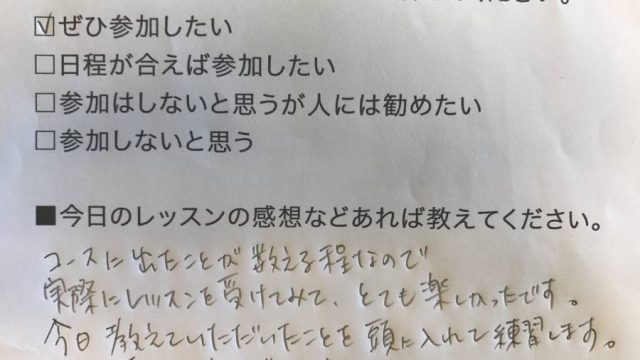 ☑ぜひ参加したい
□日程が合えば参加したい
□参加はしないと思うが人には勧めたい
□参加しないと思う
■今日のレッスンの感想などあれば教えてください。
コースに出たことが数える程なので
実際にレッスンを受けてみて、とても楽しかったです。
今日教えていただいたことを頭に入れて練習します。